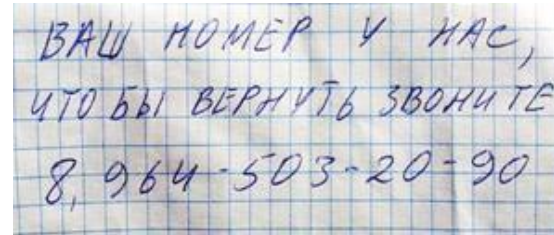 ВАШ НОМЕР У НАС,
ЧТО БЫ ВЕРНУТЬ ЗВОНИТЕ
8,964-503-20-90